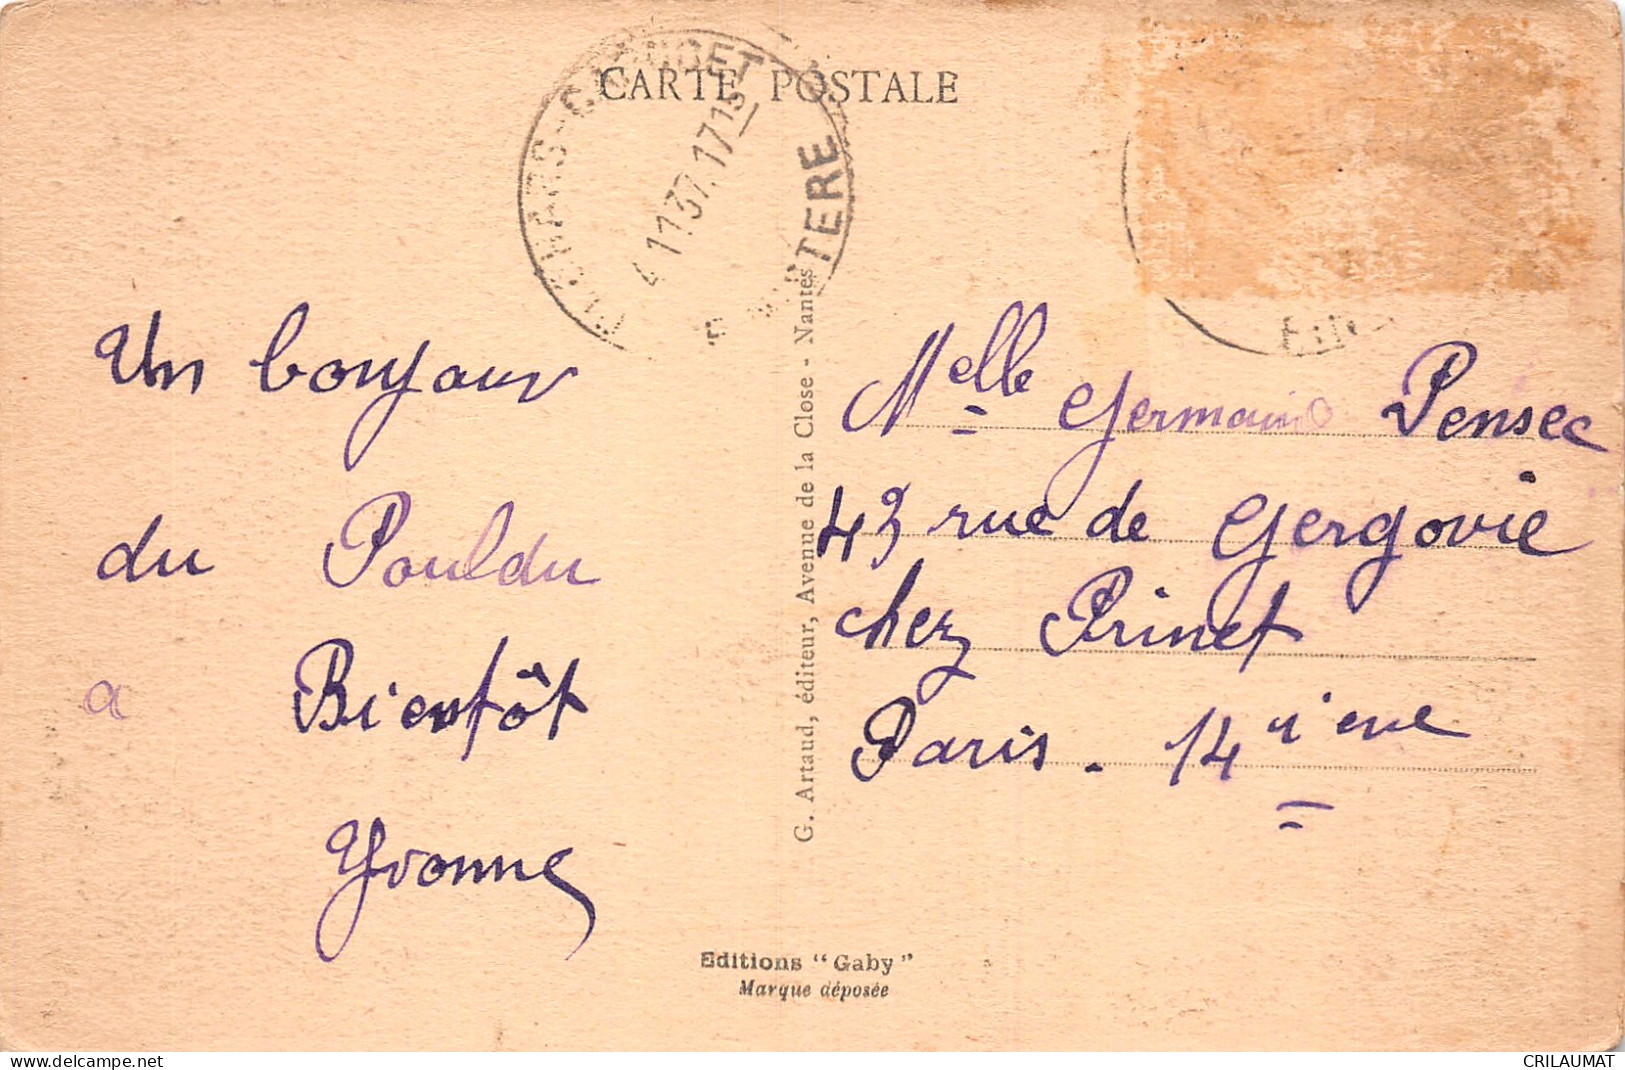 CARTE POSTALE
CLOHARS-CARNOET
4 11 37. 17 15
FINISTERE
Un bonjour
du Pouldu
a Bientôt
Yvonne
G. Artaud, éditeur, Avenue de la Close - Nantes
Melle Germaine Pensec
43 rue de Gergovie
chez Prinet
Paris. 14 ieme
Editions "Gaby"
Marque déposée
delcampe.net
CRILAUMAT